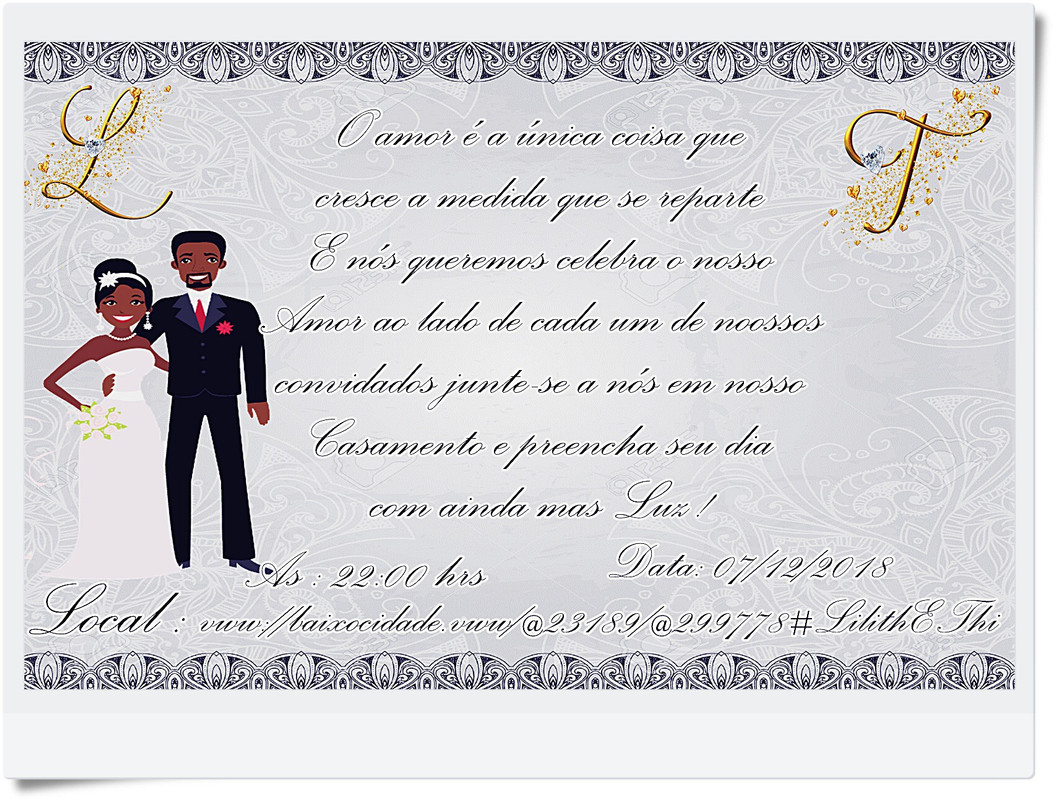 L
T
O amor é a única coisa que
cresce a medida que se reparte
E nós queremos celebra o nosso
Amor ao lado de cada um de noossos
convidados junte-se a nós em nosso
Casamento e preencha seu dia
com ainda mas Luz !
As : 22:00 hrs
Data: 07/12/2018
Local : vww://baixocidade.vwu/@23189/@299778#LilithEThi